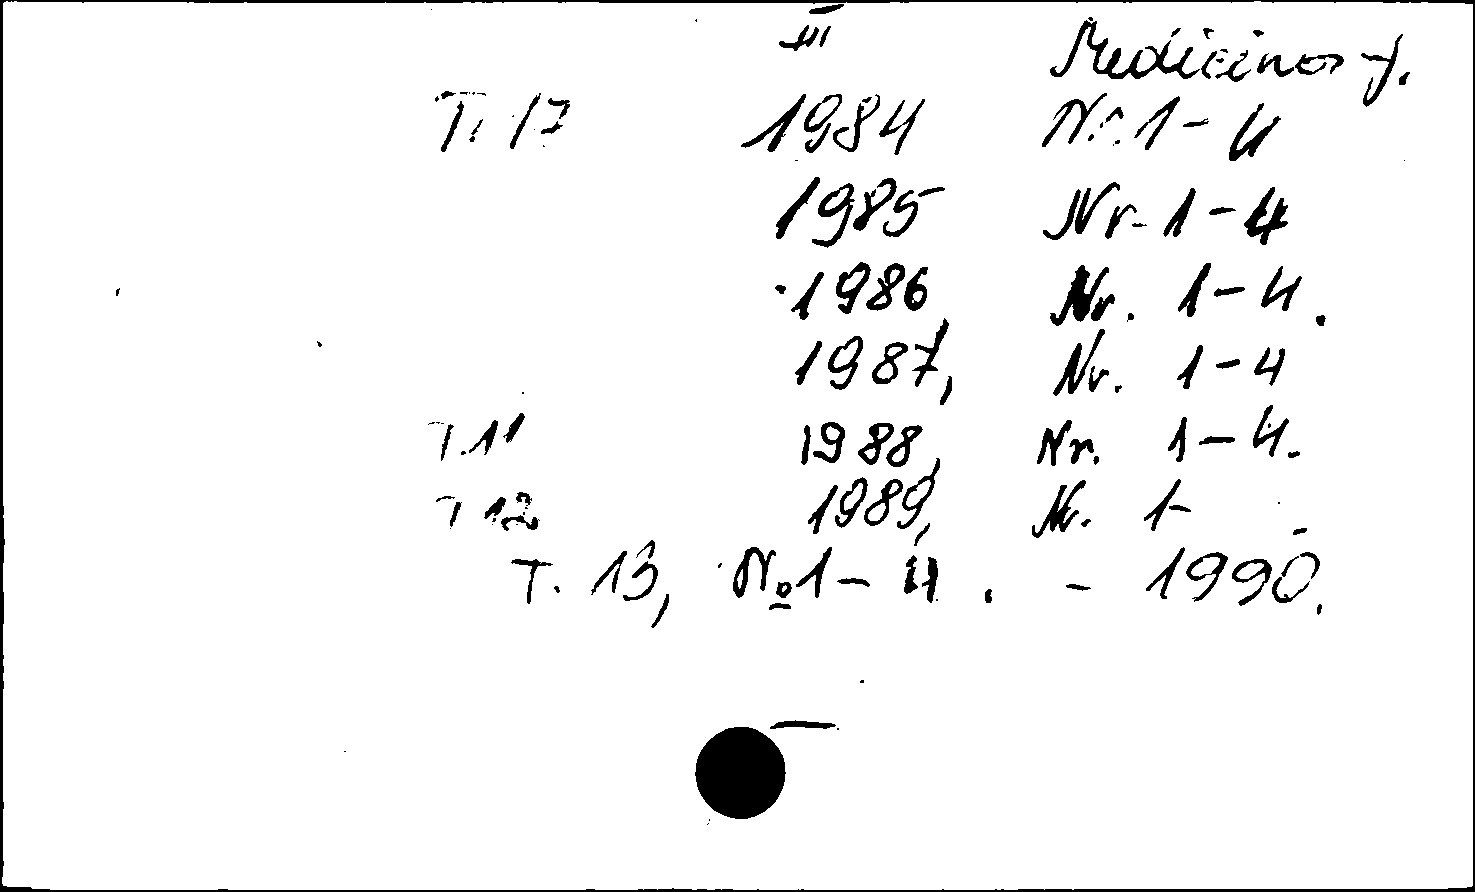 III Medicinos f.
T. 17 1984 Nr. 1-4
1985 Nr. 1-4
1986, Nr. 1-4.
1987, Nr. 1-4
T. 11 1988, Nr. 1-4.
T 12 1989, Nr. 1-
T. 13, №1-4. - 1990.